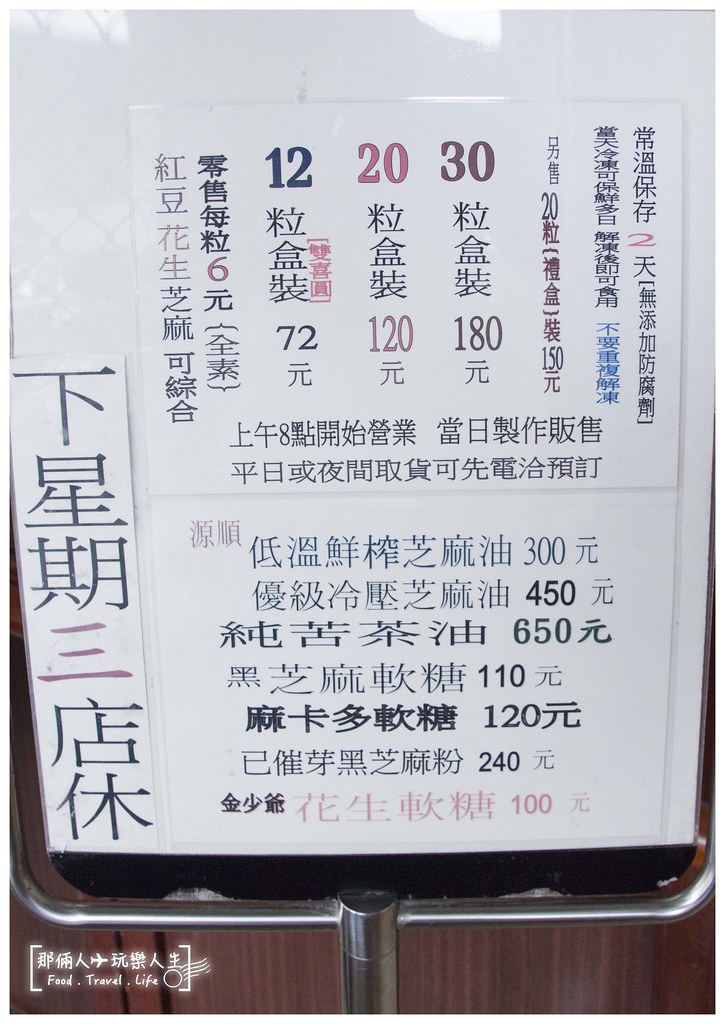 常溫保存2天[無添加防腐劑]
當天冷凍可保鮮多日 解凍後即可食用 不要重複解凍
另售20粒{禮盒}裝150元
30粒盒裝180元
20粒盒裝120元
12粒盒裝[雙喜圓]72元
零售每粒6元{全素}
紅豆花生芝麻可綜合
上午8點開始營業 當日製作販售
平日或夜間取貨可先電洽預訂
下星期三店休
源順 低溫鮮榨芝麻油 300 元
優級冷壓芝麻油 450 元
純苦茶油 650元
黑芝麻軟糖 110 元
麻卡多軟糖 120元
已催芽黑芝麻粉 240 元
金少爺 花生軟糖 100 元
那倆人✈玩樂人生
Food . Travel . Life